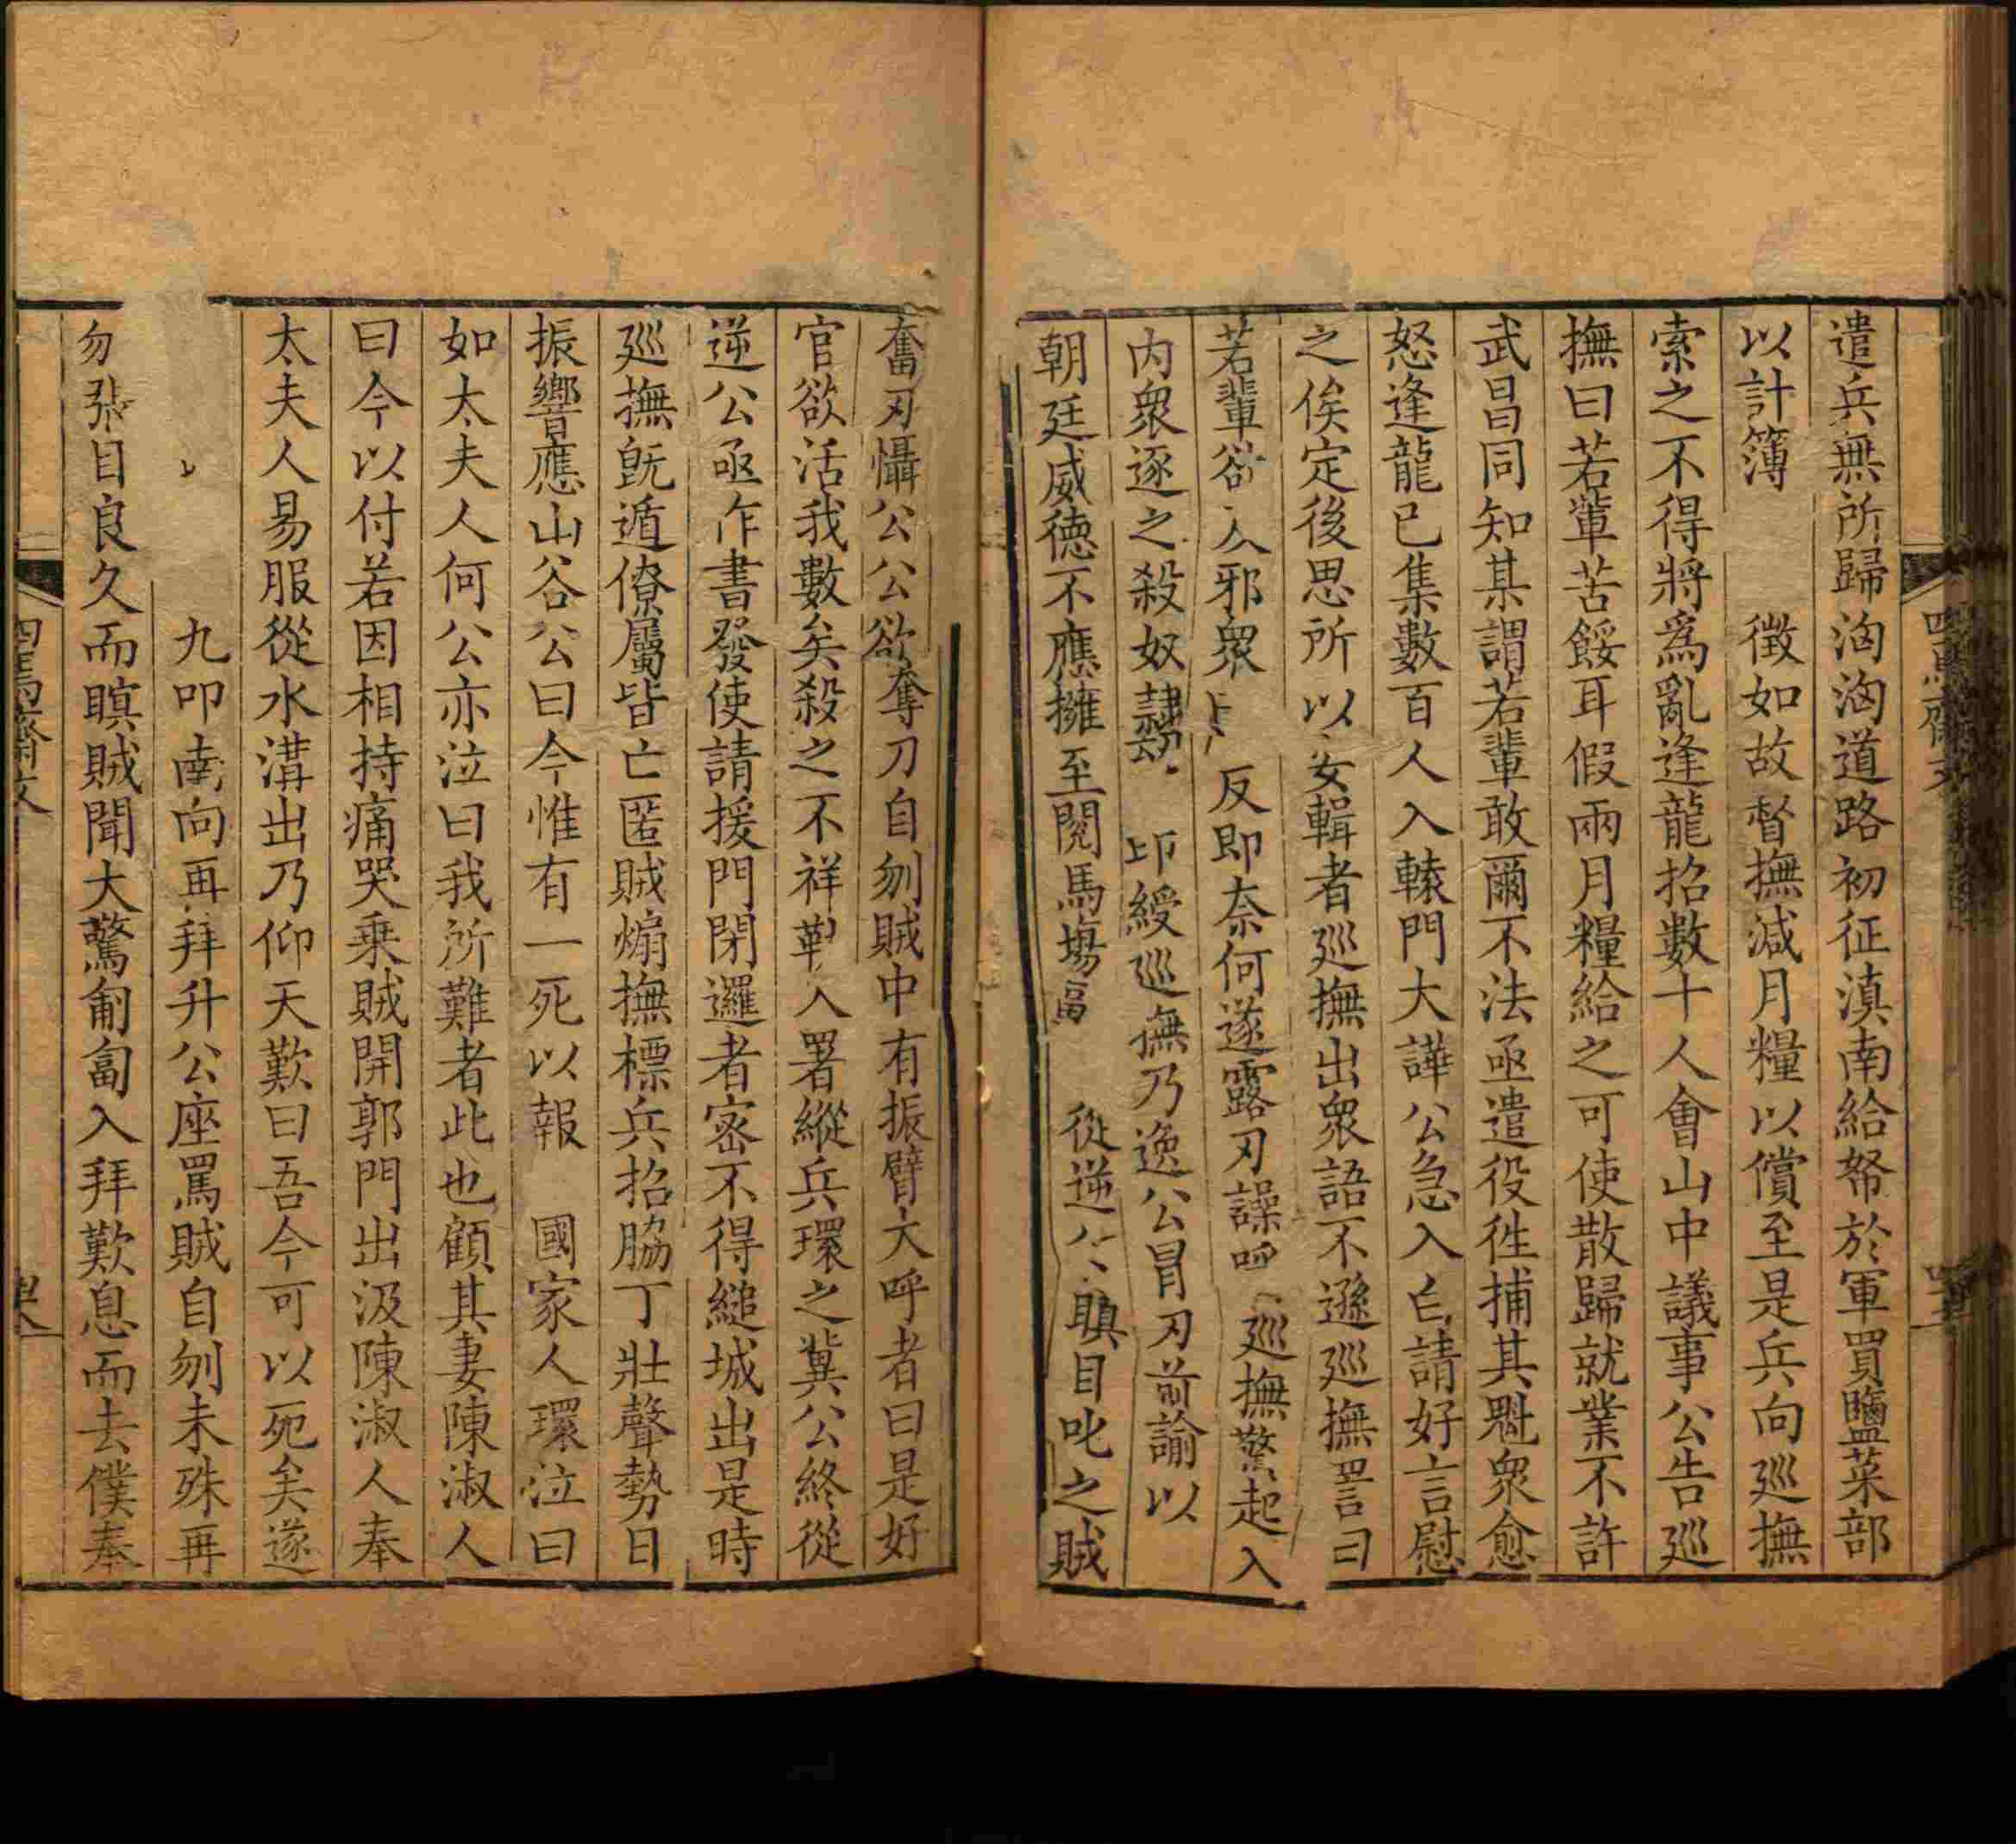 遣兵無所歸洶洶道路初征滇南給帑於軍買鹽菜部
以計簿 徵如故督撫減月糧以償至是兵向巡撫
索之不得將爲亂逢龍招數十人會山中議事公告巡
撫曰若輩苦餒耳假兩月糧給之可使散歸就業不許
武昌同知某謂若輩敢爾不法亟遣役徃捕其魁衆愈
怒逢龍已集數百人入轅門大譁公急入白請好言慰
之俟定後思所以安輯者巡撫出衆語不遜巡撫詈曰
若輩欲 入邪衆 反即奈何遂露刃譟呼 巡撫驚起入
内衆逐之殺奴隸 印綬巡撫乃逸公冒刃前諭以
朝廷威德不應擁至閱馬塲 從逆公瞋目叱之賊
奮刃懾公公欲奪刀自刎賊中有振臂大呼者曰是好
官欲活我數矣殺之不祥 入署縱兵環之冀公終從
逆公亟作書發使請援門閉邏者密不得縋城出是時
巡撫既遁僚屬皆亡匿賊煽撫標兵招脇丁壯聲勢日
振響應山谷公曰今惟有一死以報 國家人環泣曰
如太夫人何公亦泣曰我所難者此也顧其妻陳淑人
曰今以付若因相持痛哭乗賊開郭門出汲陳淑人奉
太夫人易服從水溝出乃仰天歎曰吾今可以死矣遂
九叩南向再拜升公座罵賊自刎未殊再
刎張目良久而瞑賊聞大驚匍匐入拜歎息而去僕奉